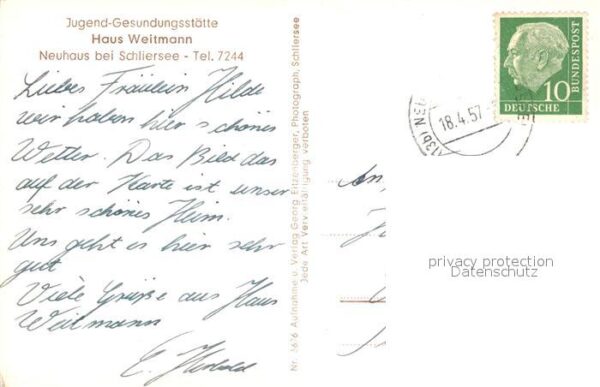 Jugend-Gesundungsstätte
Haus Weitmann
Neuhaus bei Schliersee - Tel. 7244
Liebes Fräulein Hilde
wir haben hier schönes
Wetter. Das Bild das
auf der Karte ist unser
sehr schönes Heim.
Uns geht es hier sehr
gut
Viele Grüße aus Haus
Weitmann
E.
Nr. 3676 Aufnahme u. Verlag Georg Eitzenberger, Photograph, Schliersee
Jede Art Vervielfältigung verboten
18.4.57
(13b)
10
DEUTSCHE
BUNDESPOST
An
privacy protection
Datenschutz